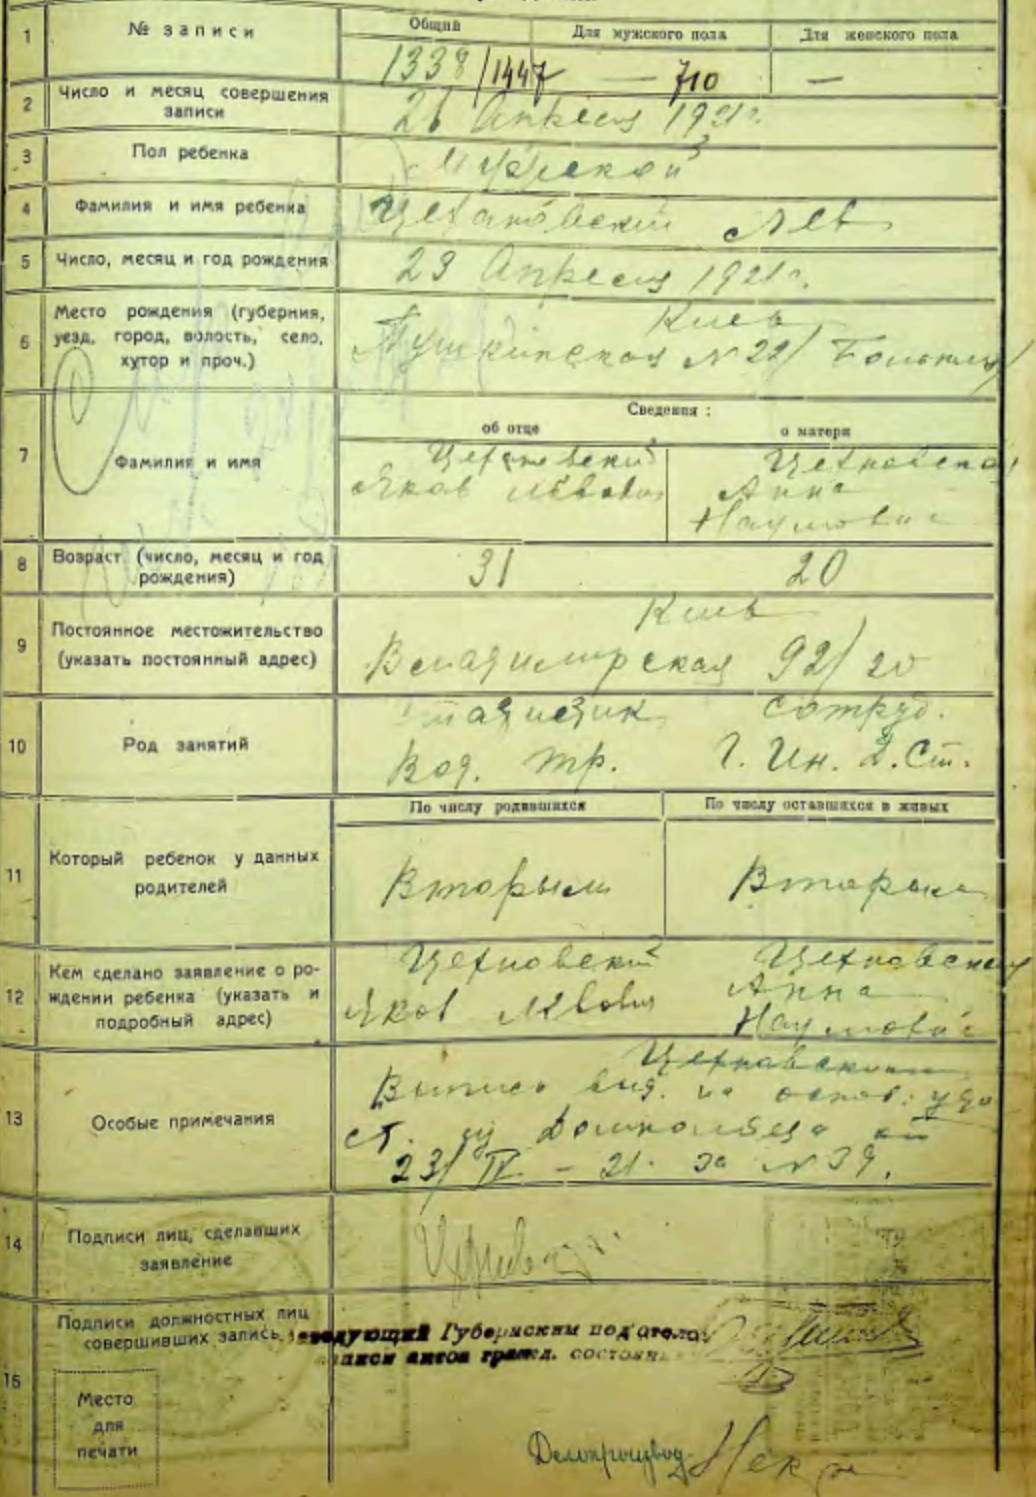 1
№ записи
Общий
Для мужского пола
Для женского пола
1338/1447 — 710 —
2
Число и месяц совершения
записи
26 Апреля 1921г.
3
Пол ребенка
Мужской
4
Фамилия и имя ребенка
Лев
5
Число, месяц и год рождения
23 Апреля 1921г.
6
Место рождения (губерния,
уезд, город, волость, село,
хутор и проч.)
Киев
Пушкинская № 22/
7
Фамилия и имя
Сведения:
об отце
о матери
Яков Львович
Анна
Наумовна
8
Возраст (число, месяц и год
рождения)
31
20
9
Постоянное местожительство
(указать постоянный адрес)
Киев
Владимирская 92/20
10
Род занятий
Вод. тр.
сотруд.
Г. Ин. 2. Ст.
11
Который ребенок у данных
родителей
По числу родившихся
По числу оставшихся в живых
Вторым
Вторым
12
Кем сделано заявление о ро-
ждении ребенка (указать и
подробный адрес)
Яков Львович
Анна
Наумовна
13
Особые примечания
Выпись выд. на основ. удо
ст.
23/IV - 21. за № 39.
14
Подписи лиц, сделавших
заявление
15
Подписи должностных лиц
совершивших запись.
Заведующий Губернским подотделом
записи актов гражд. состояния
Место
для
печати
Делопроизвод.